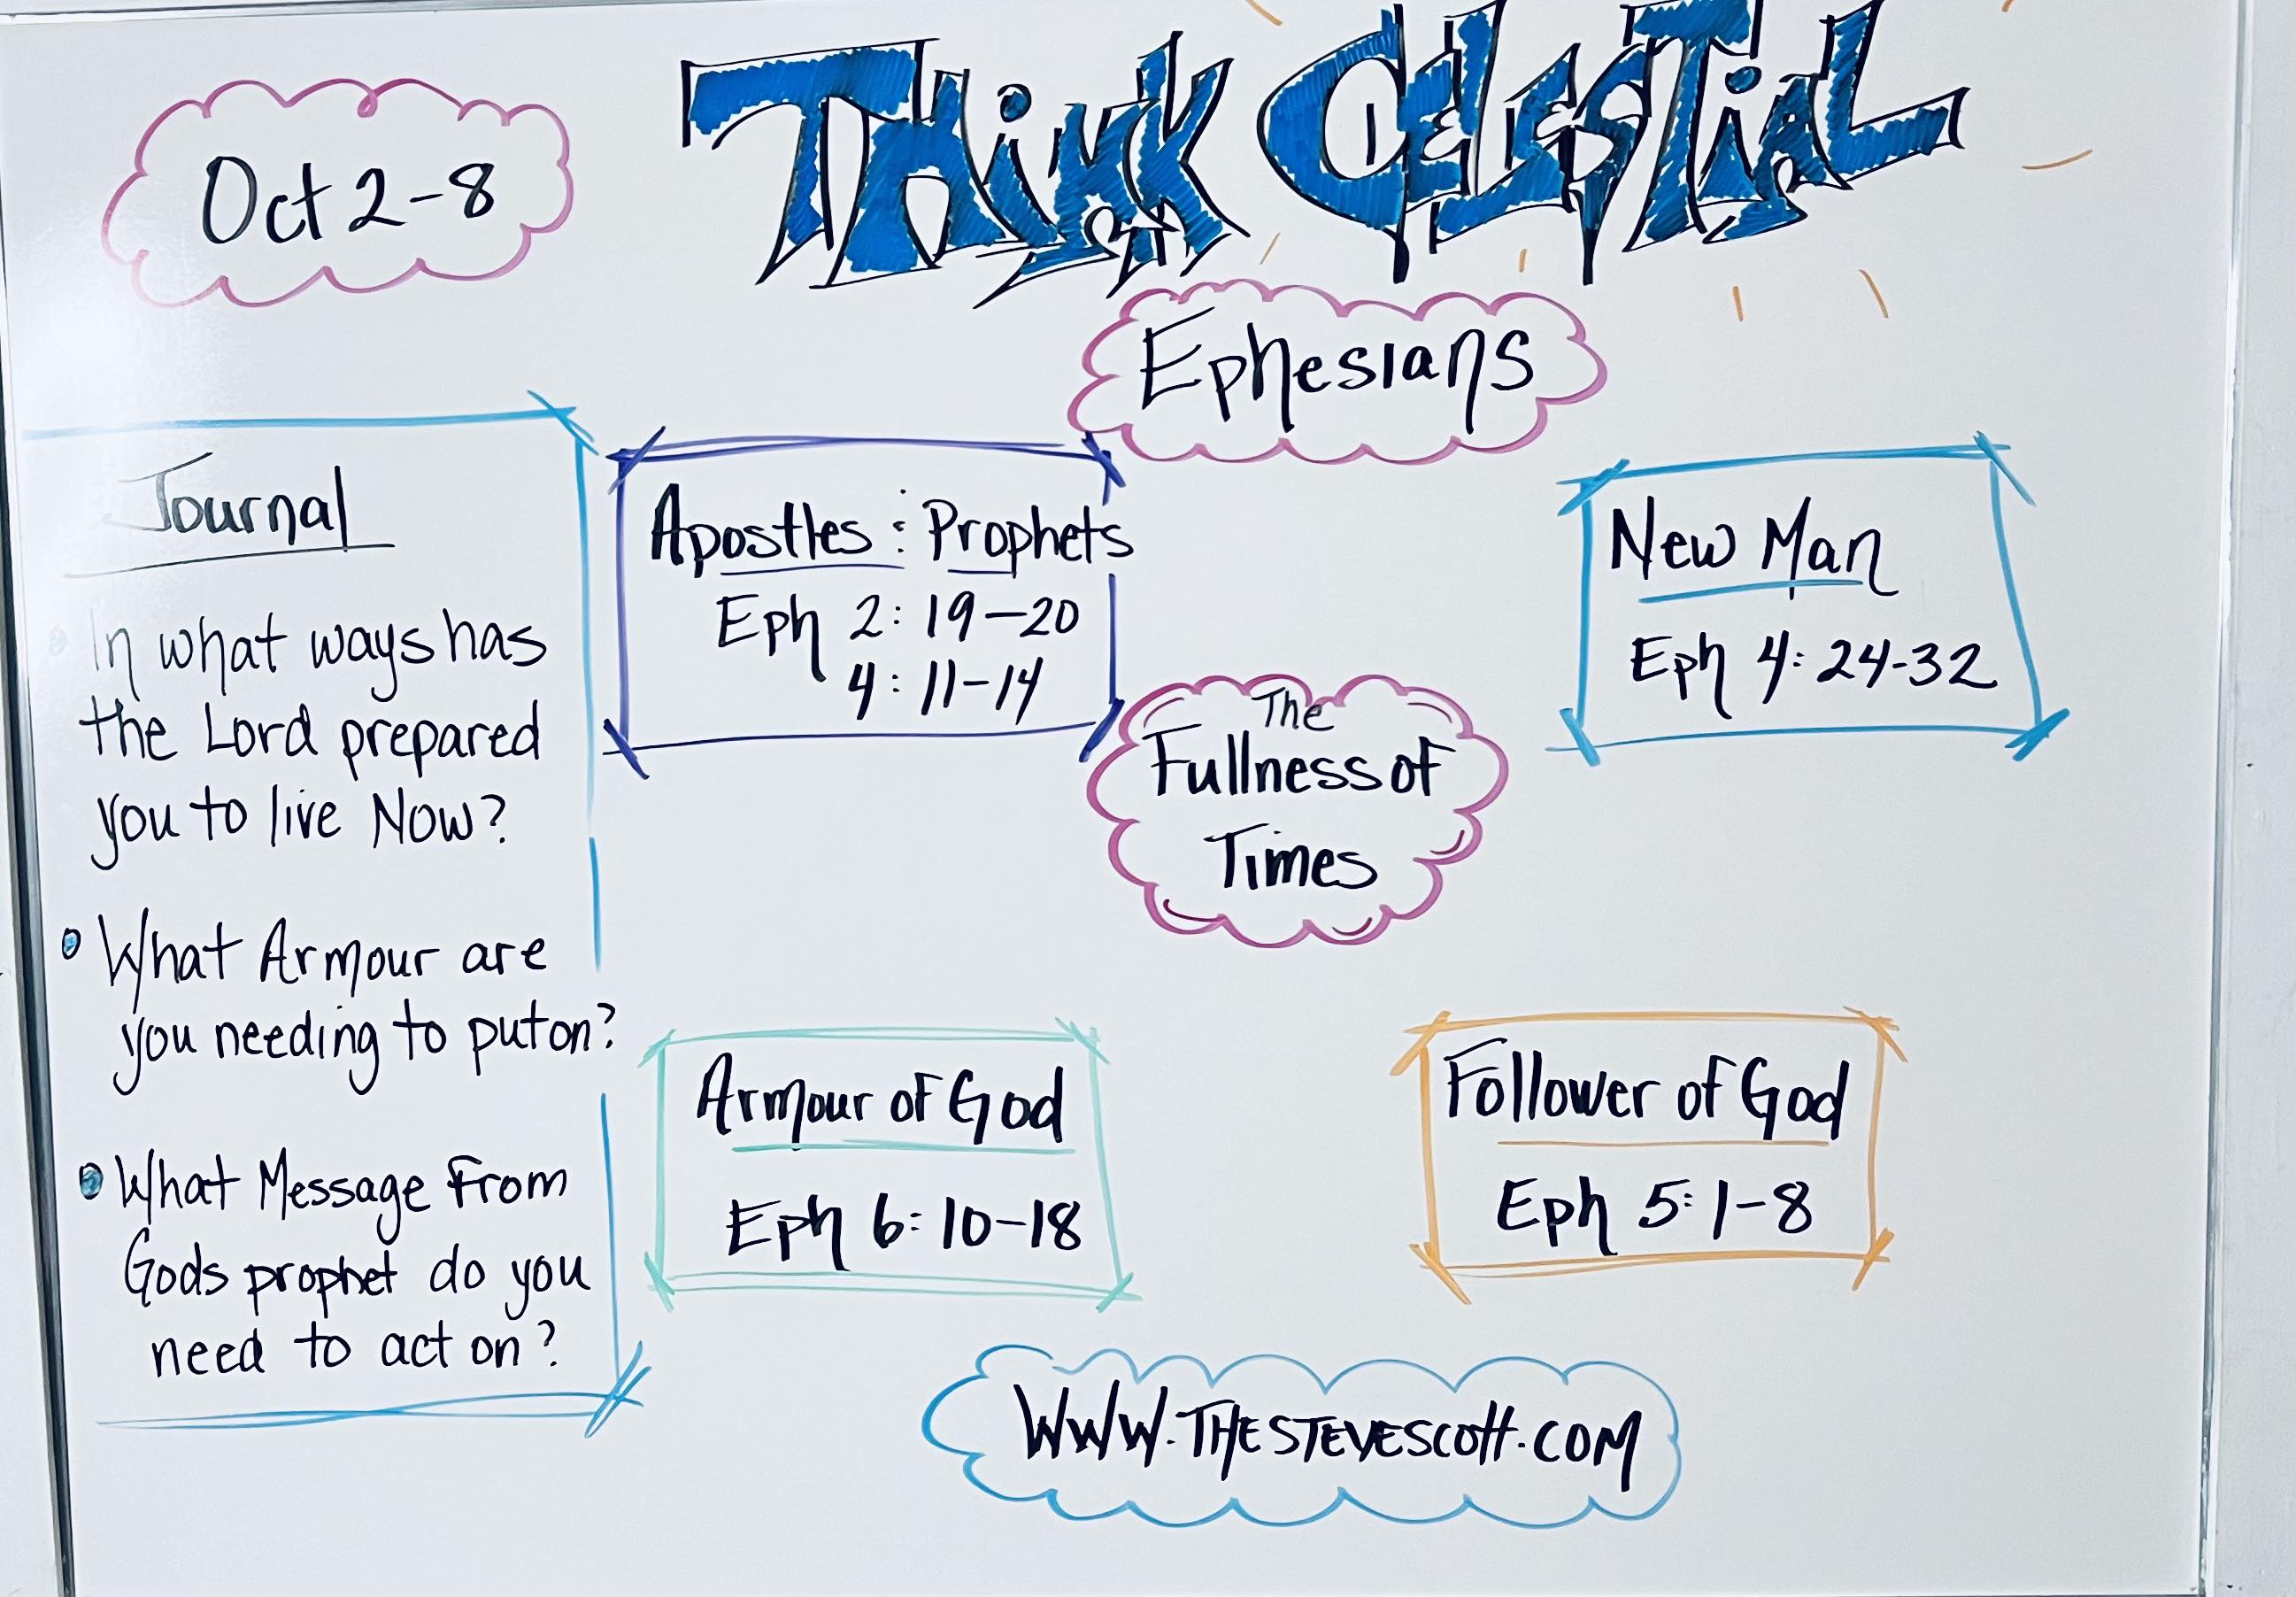 Oct 2-8
THiNK CELESTiAL
Ephesians
Journal
• In what ways has
the Lord prepared
you to live Now?
• What Armour are
you needing to put on?
• What Message From
Gods prophet do you
need to act on?
Apostles : Prophets
Eph 2: 19-20
4: 11-14
New Man
Eph 4: 24-32
The
Fullness of
Times
Armour of God
Eph 6: 10-18
Follower of God
Eph 5: 1-8
WWW.THESTEVESCOTT.COM